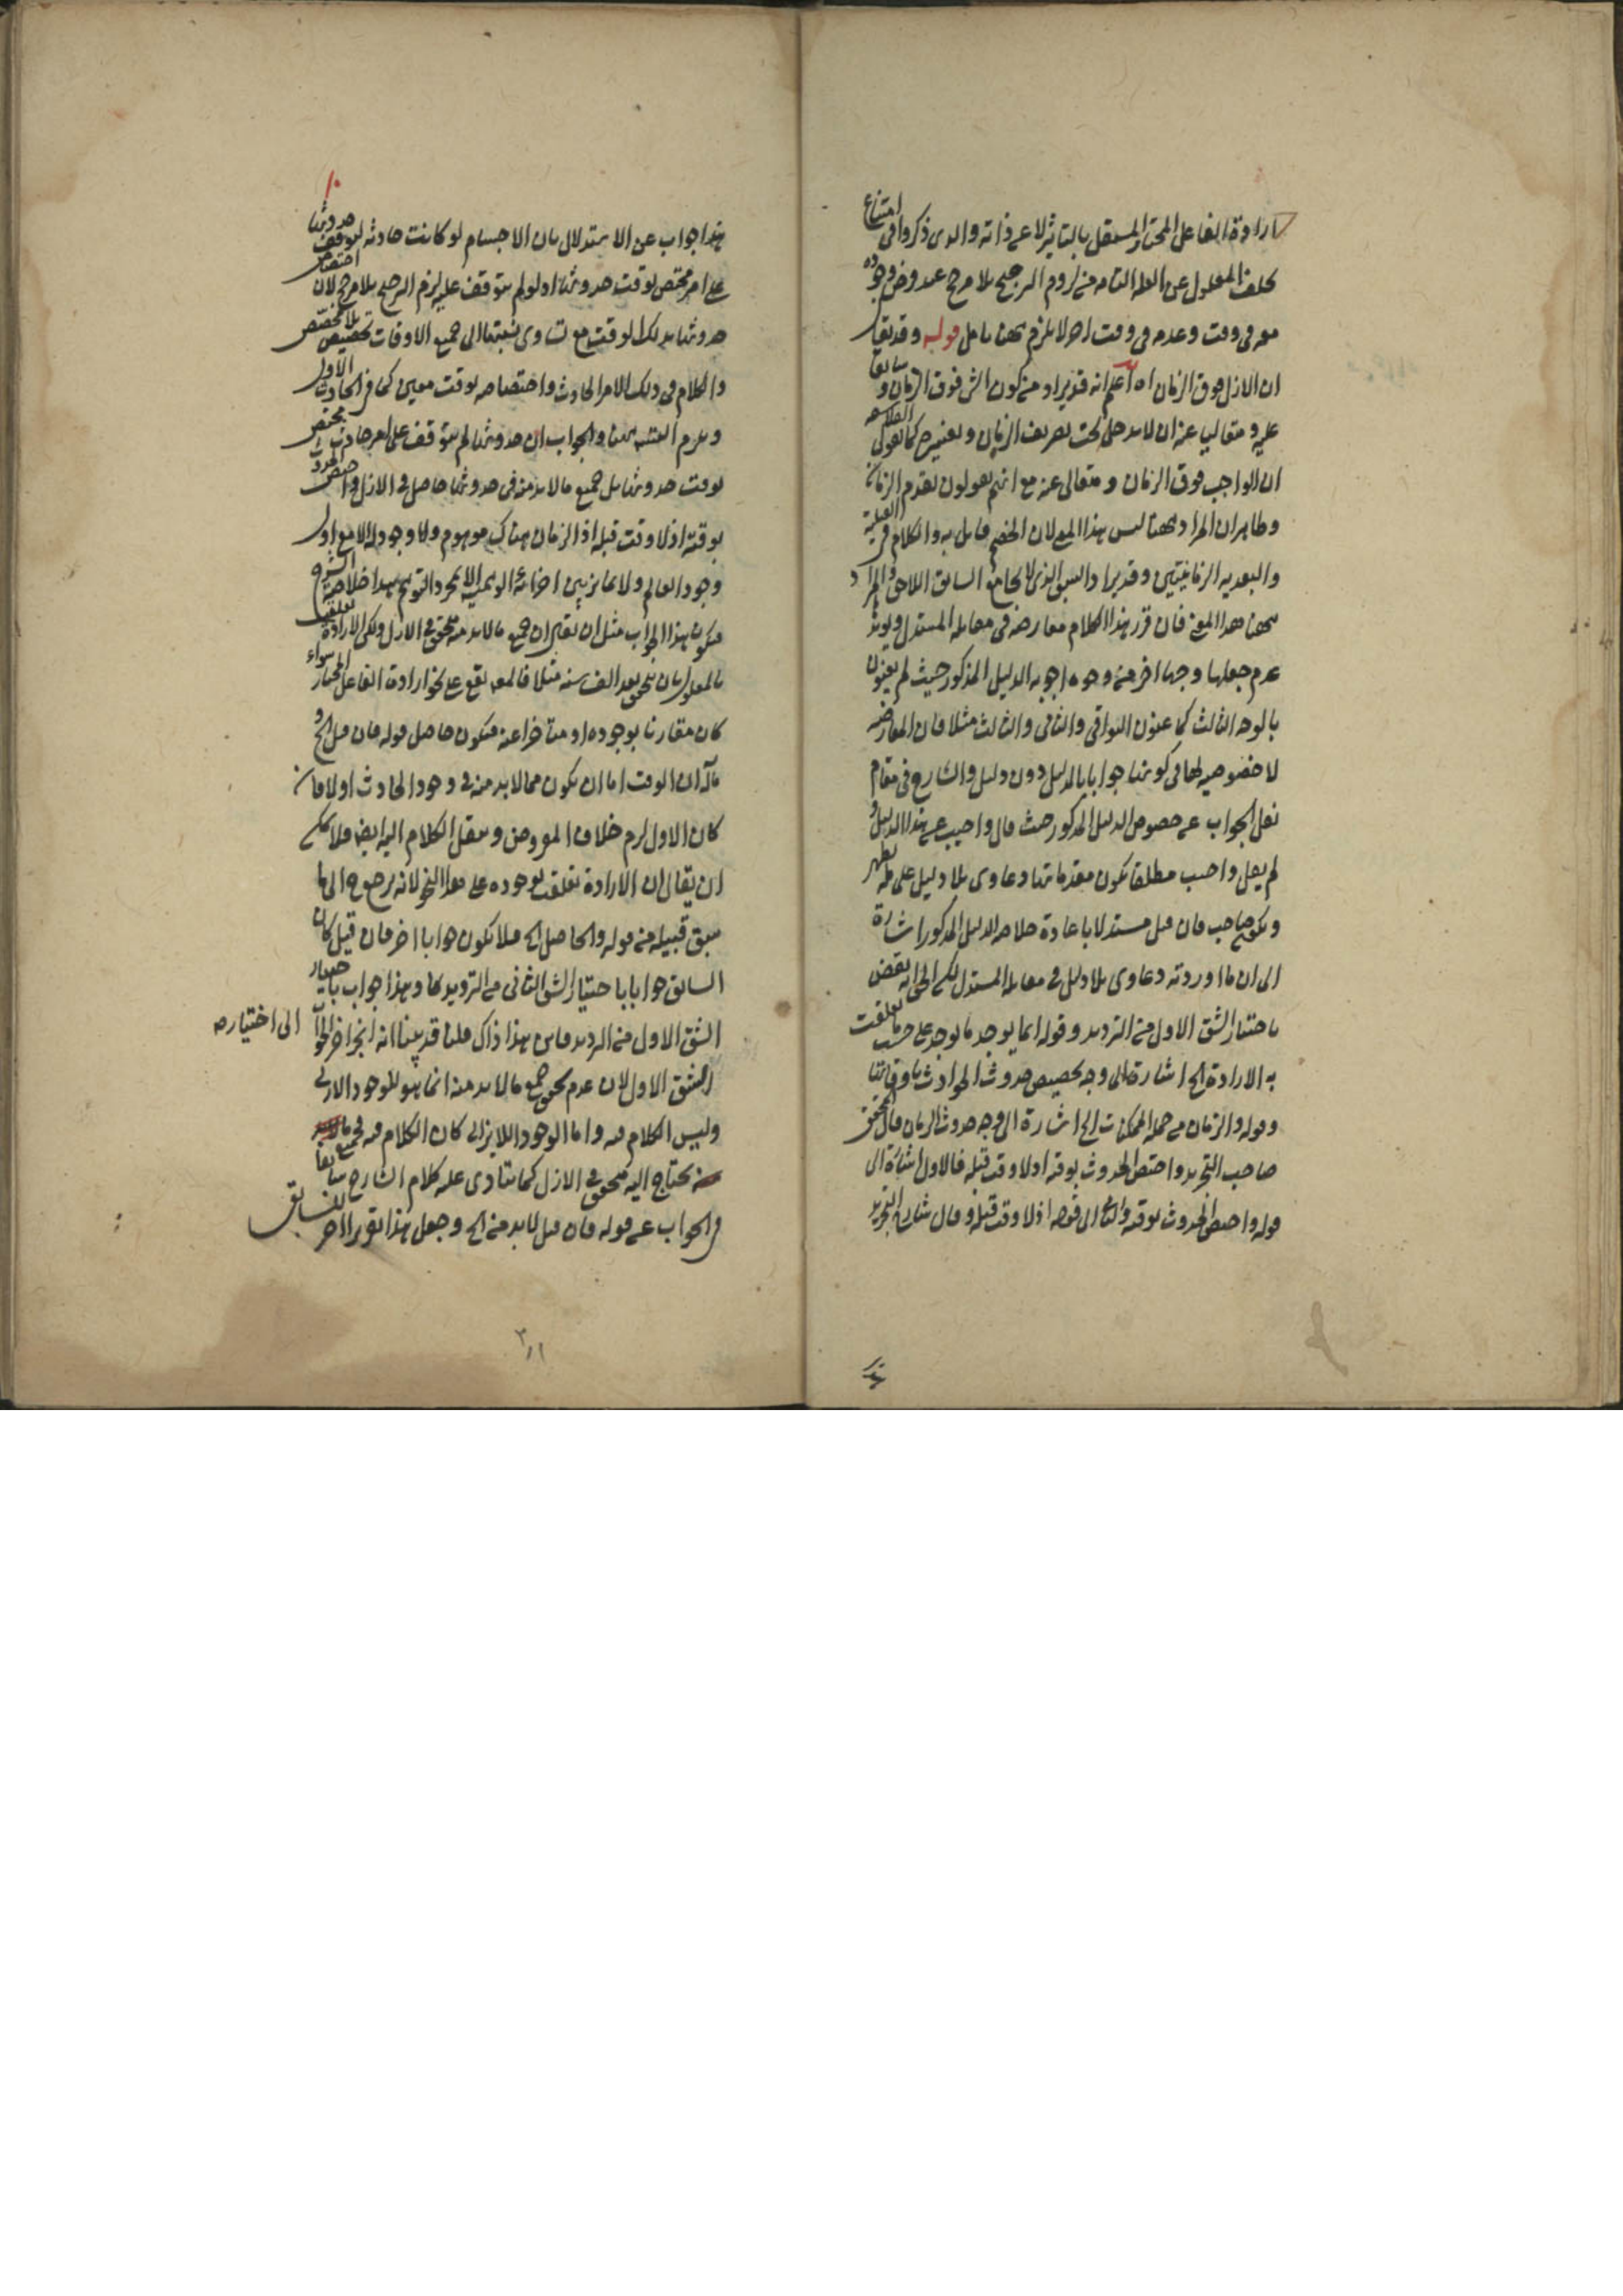 ارادة الفاعل المختار المستقل بالتاثير لا عن ذاته والذي ذكروا في امتناع
تخلف المعلول عن العلة التامة من لزوم الترجيح بلا مرجح عند فرض وجوده
معه في وقت وعدمه في وقت اخر لا يلزم ههنا تامل قوله وقد يقال
ان الازل فوق الزمان اه اعلم انه قد يراد من كون الشي فوق الزمان سابقا
عليه ومتعاليا عنه ان لا يدخل تحت تصريف الزمان وتغييره كما يقول الفلاسفة
ان الواجب فوق الزمان ومتعالى عنه مع انهم يقولون بقدم الزمان
وظاهر ان المراد ههنا ليس هذا المعنى لان الخصم قايل به والكلام في القبلية
والبعدية الزمانيتين وقد يراد السبق الذي لا يجامع السابق اللاحق والمراد
ههنا هذا المعنى فان قرر هذا الكلام معارضة في مقابلة المستدل ويؤيد
عدم جعلها وجها اخر من وجوه اجوبة الدليل المذكور حيث لم يعنون
بالوجه الثالث كما عنون البواقي والثاني والثالث مثلا فان المعارضة
لا خصوصية لها في كونها جوابا بالدليل دون دليل والشارح في مقام
نقل الجواب عن خصوص الدليل المذكور حيث قال واجيب عن هذا الدليل و
لم يقل واجيب مطلقا يكون مقدماتها دعاوى بلا دليل على ما يظهر
ويكون صاحب فان قيل مستدلا باعادة خلاصة الدليل المذكور اشارة
الى ان ما اوردته دعاوى بلا دليل في مقابلة المستدل لكن الحق انه نقض
باختيار الشق الاول من الترديد وقوله انما يوجد ما يوجد على حسب ما تعلقت
به الارادة الخ اشارة الى وجه تخصيص حدوث الحوادث باوقاتها
وقوله والزمان من جملة الممكنات الخ اشارة الى وجه حدوث الزمان قال المحقق
صاحب التجريد واختص الحدوث بوقته اذ لا وقت قبله فالاول اشارة الى
قوله واختص الحدوث بوقته والثاني الى قوله اذ لا وقت قبله وقال شارح التجريد
١٠
هذا جواب عن الاستدلال بان الاجسام لو كانت حادثة لتوقف حدوثها
على امر مختص لوقت حدوثها اذ لو لم يتوقف عليه لزم الترجيح بلا مرجح لان اختصاص
حدوثها بذلك الوقت مع تساوي نسبتها الى جميع الاوقات تخصيص بلا مخصص
والكلام في ذلك الامر الحادث واختصاصه بوقت معين كما في الحادث الاول
ويلزم التسلسل والجواب ان حدوثها لم يتوقف على امر حادث مختص
لوقت حدوثها بل جميع ما لا بد منه في حدوثها حاصل في الازل واختص الحدوث
بوقته اذ لا وقت قبله اذ الزمان هناك موهوم ولا وجود له الا مع اول
وجود العالم ولا تمايز بين اجزائه الوهمية الا بمجرد التوهم هذا خلاصة الشرح
فيكون هذا الجواب مثل ان يقال ان جميع ما لا بد منه متحقق في الازل ولكن الارادة تعلقت
بالمعلول بان يتحقق بعد الف سنة مثلا فالمعلول يقع على نحو ارادة الفاعل المختار سواء
كان مقارنا بوجوده او متاخرا عنه فيكون حاصل قوله فان قيل الخ و
مآله ان الوقت اما ان يكون مما لا بد منه في وجود الحادث اولا فان
كان الاول لزم خلاف المفروض وينقل الكلام اليه ايضا فلا يمكن
ان يقال ان الارادة تعلقت بوجوده على هذا النحو لانه رجوع الى ما
سبق قبيله من قوله والحاصل الخ فلا يكون جوابا اخر فان قيل كان
السابق جوابا باختيار الشق الثاني من الترديد كما وهذا جواب باختيار
الشق الاول من الترديد فاين هذا ذاك قلنا قد بينا انه انجر اخر الجواب الى اختياره
الشق الاول لان عدم تحقق جميع ما لا بد منه انما هو للوجود الازلي
وليس الكلام فيه واما الوجود اللايزالي كان الكلام فيه فجميع ما
يحتاج اليه متحقق في الازل كما ينادي عليه كلام الشارح سابقا
والجواب عن قوله فان قيل لا بد منه الخ وجعل هذا تقريرا اخر للسابق